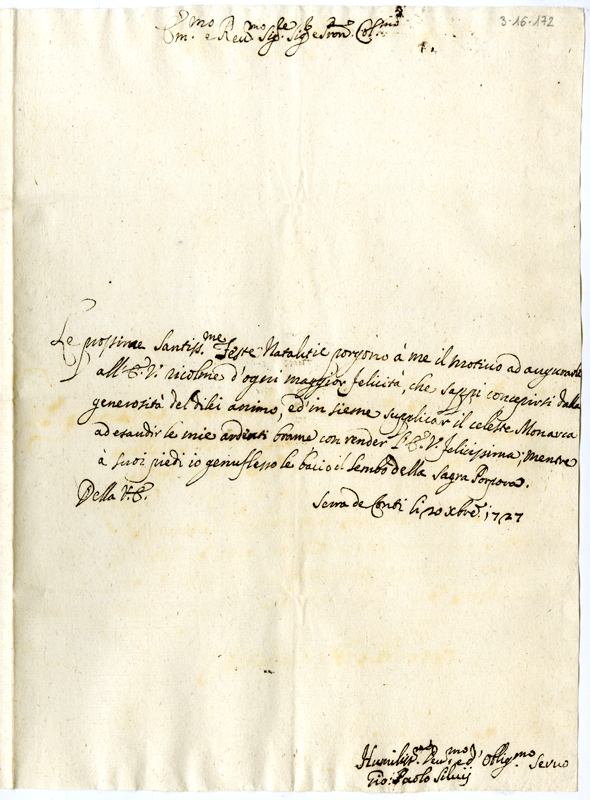 3-16-172
Em.mo e Reu.mo Sig.re Sig.re e Pron. Col.mo
Le prossime Santiss.me Feste Natalitie porgono à me il motiuo ad augurarle
all'E.V. ricolme d'ogni maggior felicità, che sappi concepirsi dalla
generosità del di lei animo, ed in sieme supplicar il celeste Monarca
ad esaudir le mie ardenti brame con render l'E.V. felicissima; mentre
à suoi piedi io genuflesso le bacio il lembo della Sagra Porpora.
Della V.E.
Serra de Conti li 20 xbre 1727
Humiliss.mo Deu.mo ed Oblig.mo Seruo
Gio: Paolo Siluij